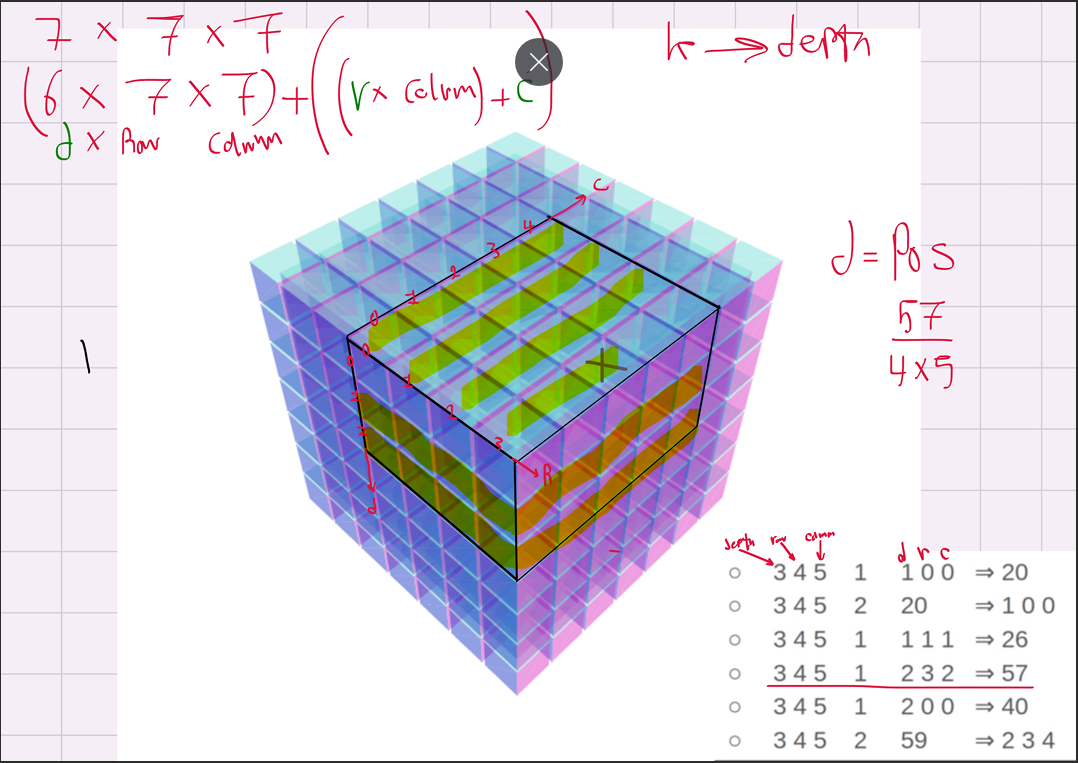 7 × 7 × 7
k → depth
(6 × 7 × 7) + ((r × Colum) + c)
d × Row Colum
C
4
3
2
1
0
d = Pos
57
4×5
0
0
1
1
2
2
3
3
R
d
depth row colum
d r c
3 4 5 1 1 0 0 ⇒ 20
3 4 5 2 20 ⇒ 1 0 0
3 4 5 1 1 1 1 ⇒ 26
3 4 5 1 2 3 2 ⇒ 57
3 4 5 1 2 0 0 ⇒ 40
3 4 5 2 59 ⇒ 2 3 4